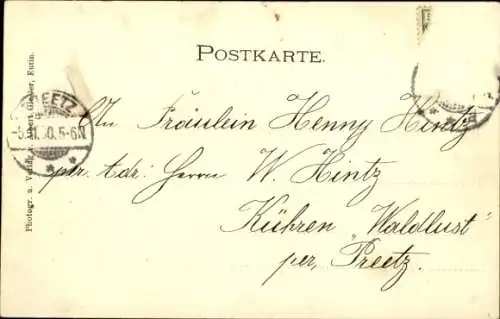 POSTKARTE.
An Fräulein Henny Hintz
per. Adr: Herrn W. Hintz
Kühren "Waldlust"
per, Preetz.
PREETZ
-5.11.00.5-6N
Photogr. u. Verlag v. Albert Giesler, Eutin.